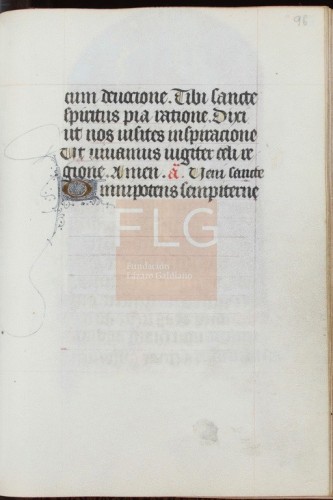 96
cum deuocione. Tibi sancte
spiritus pia ratione. Dixi
ut nos uisites inspiracione
Ut uiuamus iugiter celi re
gione. Amen. a Veni sancte
Omnipotens sempiterne
FLG
Fundación
Lázaro Galdiano